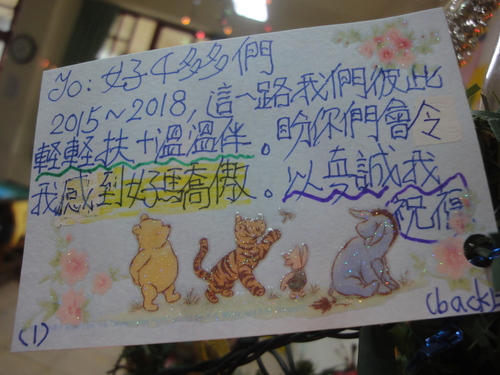 To: 好4多多們
2015~2018, 這一路我們彼此
輕輕扶+溫溫伴。盼你們會令
我感到好驕傲。以真誠我
祝福
(1)
(back)